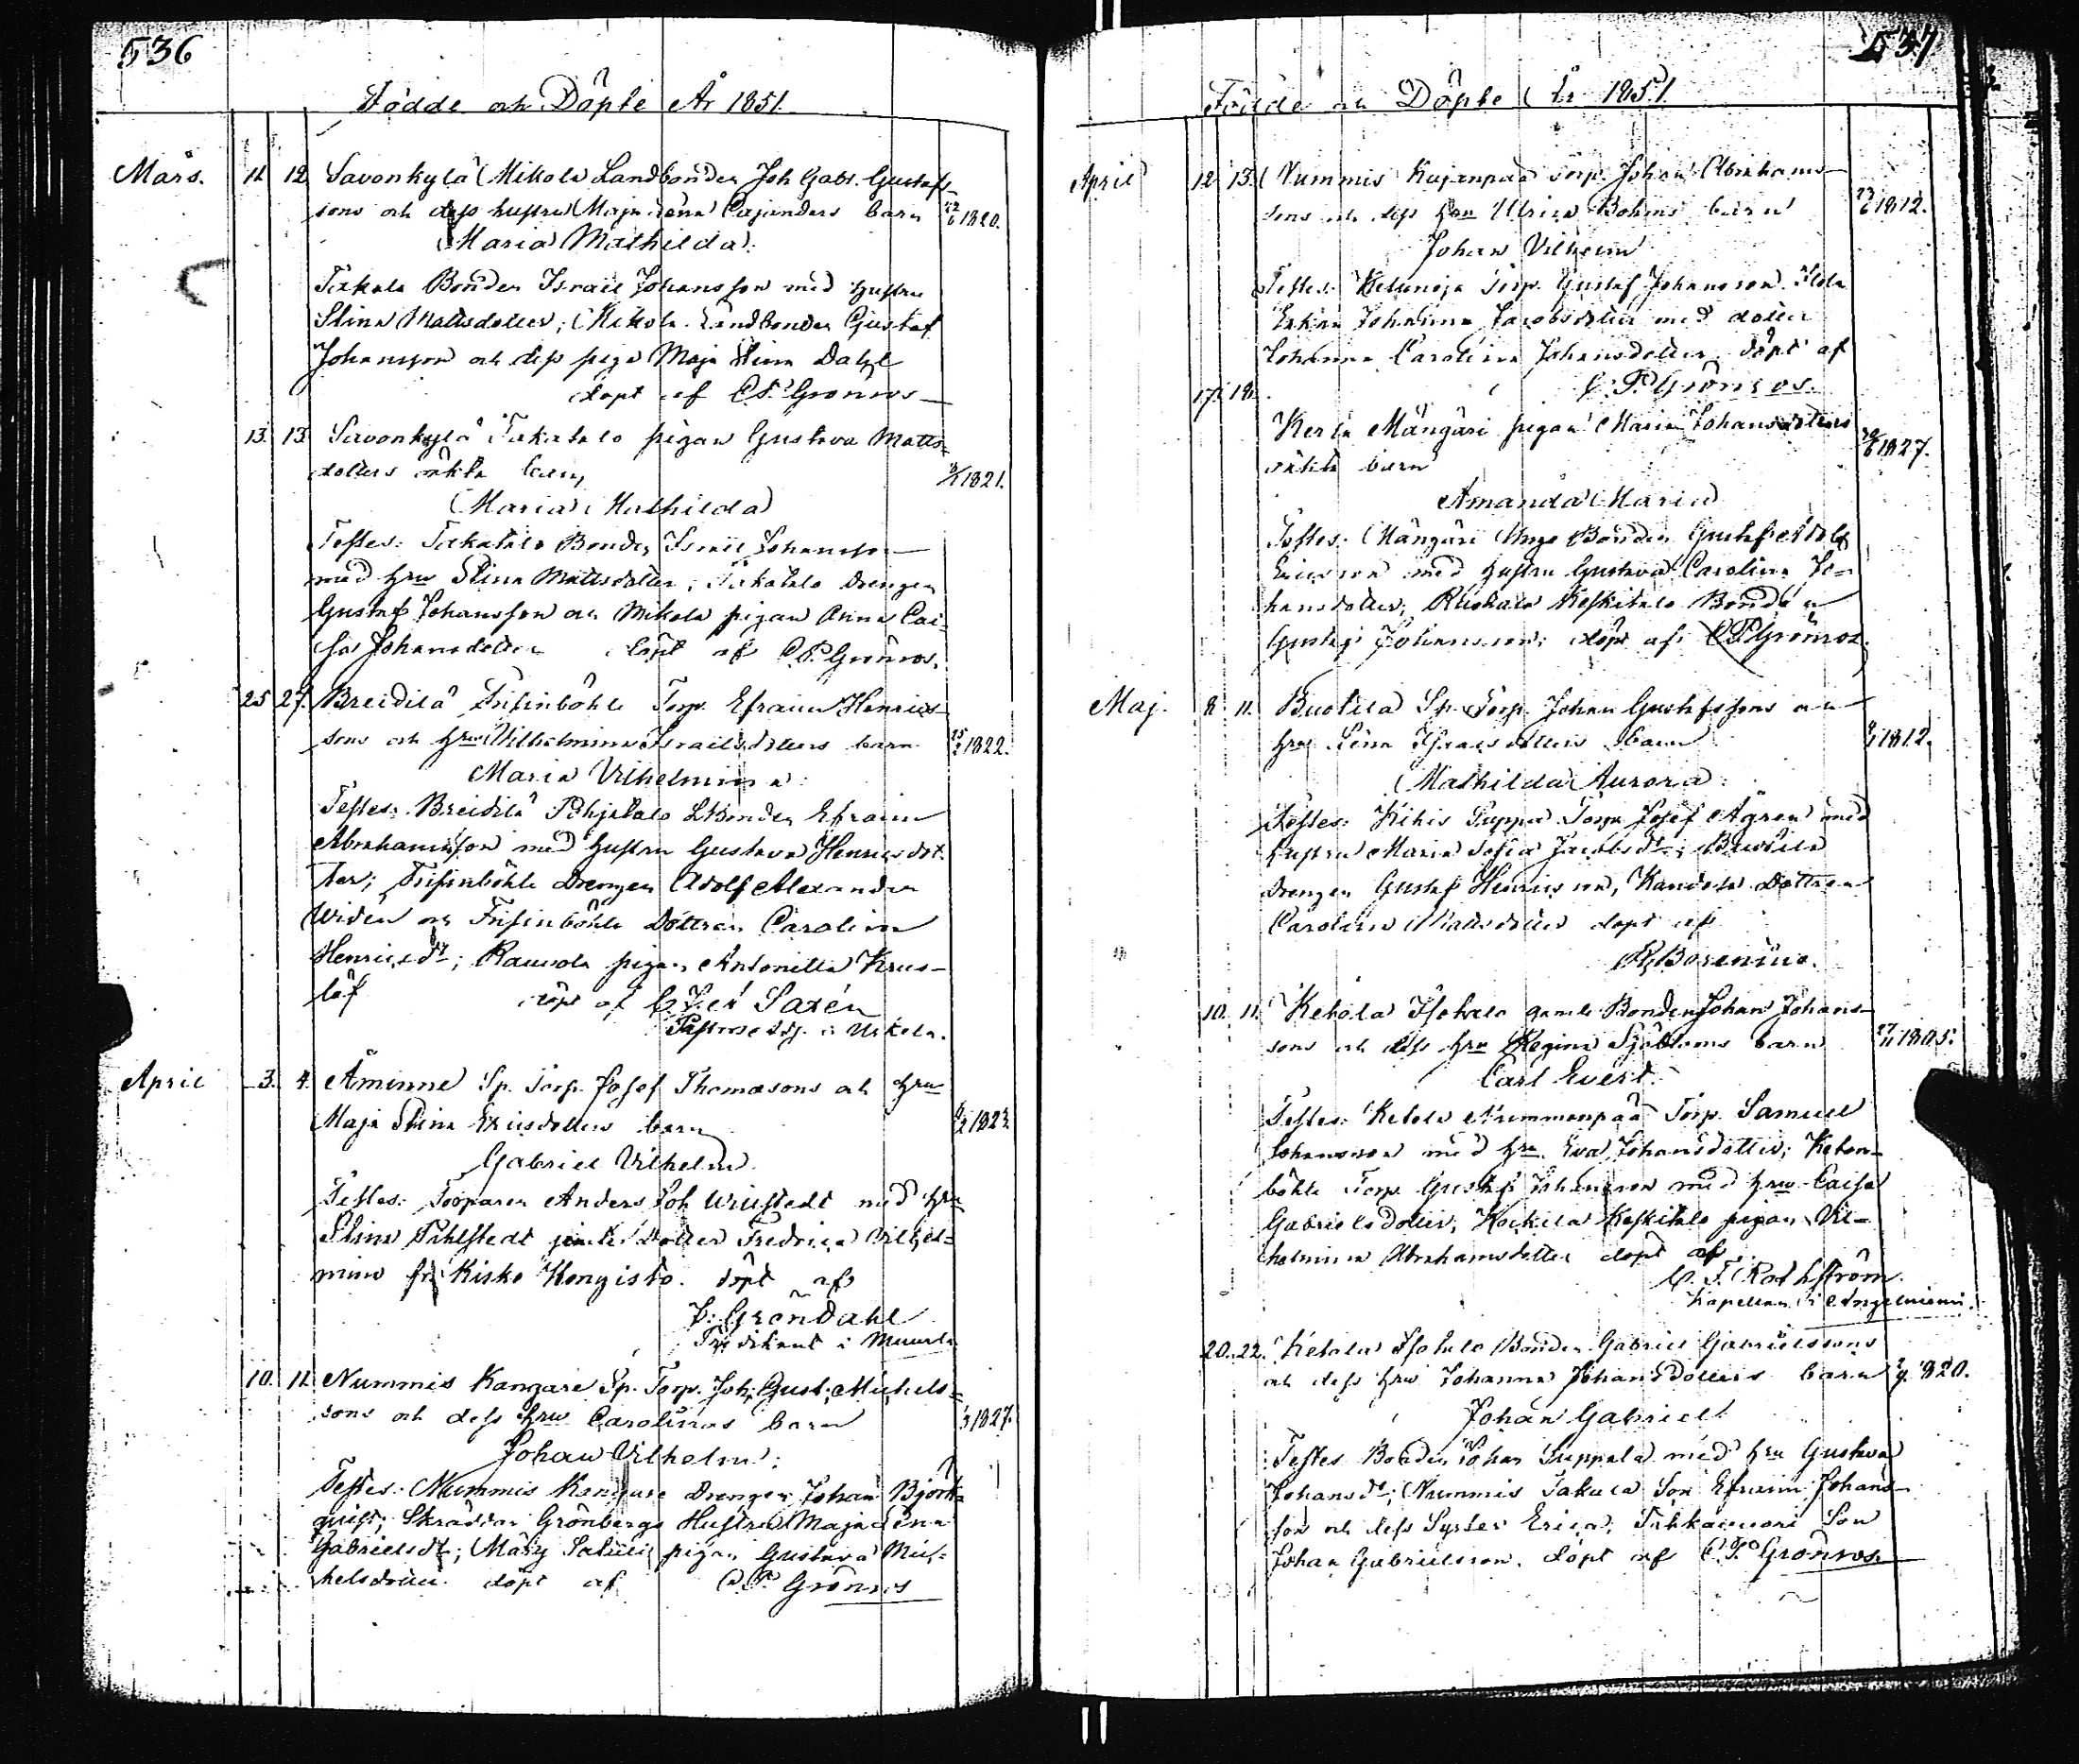 536
Födde och Döpte År 1851.
Mars. 11. 12. Savonkylä Mikola Landbonden Joh. Gabr. Gustafs-
sons och dess hustru Maja Lena Cajanders barn 1820.
Maria Mathilda.
Bonden Israel Johansson med hustru
Stina Mattsdotter; Mikola Landbonden Gustaf
Johansson och dess piga Maja Stina Dahl
döpt af C.P. Grönroos
13. 13. Savonkylä pigan Gustava Matts-
dotters oäkta barn, 1821.
Maria Mathilda
Testes: Bonden Israel Johansson
med hru Stina Mattsdotter; Drengen
Gustaf Johansson och Mikola pigan Anna Cai-
sa Johansdotter döpt af C.P. Grönroos.
25 27. Breidilä Frisinböhle Torp. Efraim Henrics-
sons och hru Vilhelmina Israelsdotters barn 1822.
Maria Vilhelmina:
Testes: Breidilä Pohjatalo LBonden Efraim
Abrahamsson med hustru Gustava Henricsdot-
ter; Frisinböhle Drengen Adolf Alexander
Widen och Frisinböhle Dottren Carolina
Henricsdr; pigan Antonetta Krus-
löf döpt af Saxén
i Uskela.
April 3. 4. Åminne Sp. Torp. Josef Thomasons och hru
Maja Stina Ericsdotters barn 1823.
Gabriel Vilhelm.
Testes: Torparen Anders Joh. med hru
Stina Dotter Fredrica Vilhel-
mina fr. Kisko Kongisto. döpt af
Gröndahl
Predikant i Muurla
10. 11. Nummis Kangare Sp. Torp. Joh. Gust. Michels-
sons och dess hru Carolinas barn 1827.
Johan Vilhelm:
Testes: Nummis Kangare Drengen Johan Björk-
quist; Skräddar Grönbergs Hustru Maja Lena
Gabrielsdr; pigan Gustava Mic-
helsdotter. döpt af C.P. Grönroos
537
Födde och Döpte År 1851.
April 12. 13. Nummis Kajanpää Torp. Johan Abrahams-
sons och dess hru Ulrica Bohms barn 1812.
Johan Vilhelm
Testes: Torp. Gustaf Johansson
Enkan Johanna Jacobsdotter med dotter
Johanna Carolina Johansdotter. döpt af
C.P. Grönroos.
17. 18.
Kerla Mängäri pigan Maria Johansdotters
oäkta barn 1827.
Amanda Maria
Testes: Mängäri Unge Bonden Gustaf Adolf
Ericsson med hustru Gustava Carolina Jo-
hansdotter; Keskitalo Bonden
Gustaf Johansson; döpt af C.P. Grönroos.
Maj. 8. 11. Buotila Sp. Torp. Johan Gustafssons och
hru Lena barn 1812.
Mathilda Aurora:
Testes: Torp. Josef Ågren med
hustru Maria Sofia Jacobsdr;
Drengen Gustaf Henricsson, Dottren
Carolina Mattsdotter döpt af
Borenius.
10. 11. Ketola Isotalo gamle Bonden Johan Johans-
sons och dess hru Regina Sjöbloms barn 1805.
Carl Evert.
Testes: Ketola Nummenpää Torp. Samuel
Johansson med hru Eva Johansdotter; Keton-
böhle Torp. Gustaf Johansson med hru Caisa
Gabrielsdotter; Keskitalo pigan Vil-
helmina Abrahamsdotter döpt af
C. F. Rothström.
Kapellan i Angelniemi.
20. 22. Ketola Isotalo Bonden Gabriel Gabrielssons
och dess hru Johanna Johansdotters barn 820.
Johan Gabriel.
Testes Bonden Johan Suppala med hru Gustava
Johansdr; Nummis Jakula Son Efraim Johans-
son och dess Syster Erica; Son
Johan Gabrielsson. döpt af C.P. Grönroos